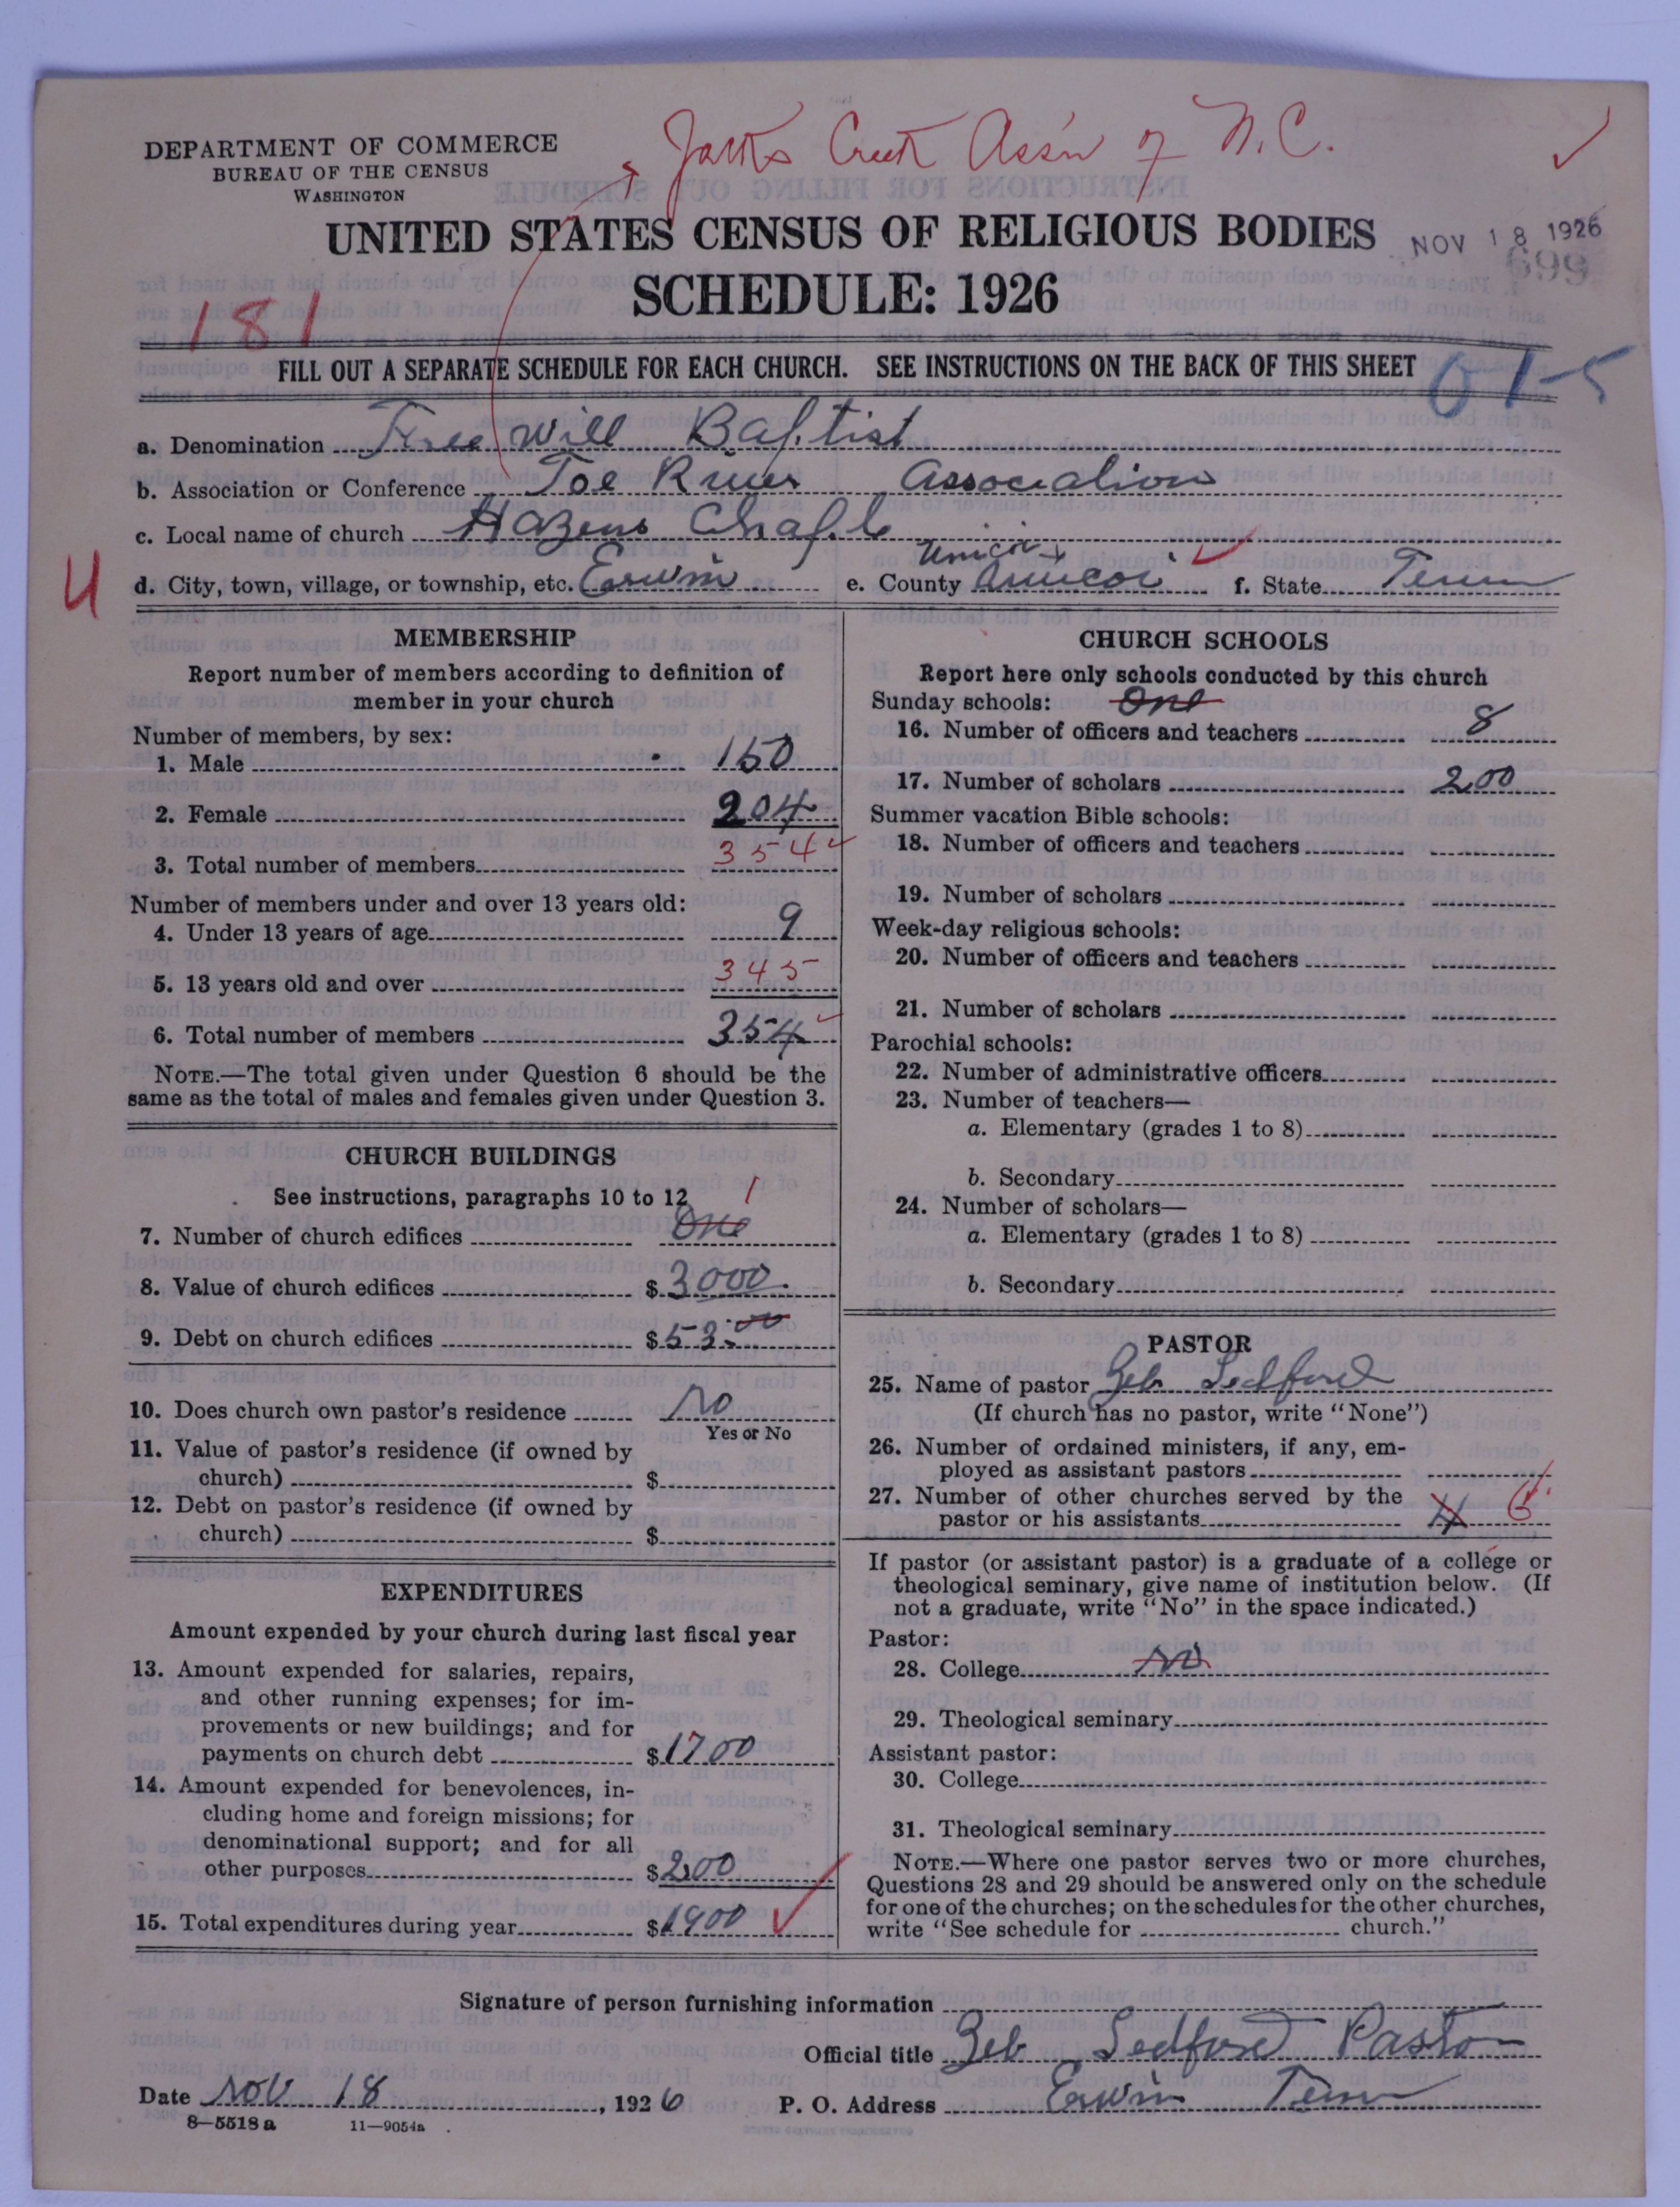 Jacks Creek Ass'n of N.C.
DEPARTMENT OF COMMERCE
BUREAU OF THE CENSUS
WASHINGTON
UNITED STATES CENSUS OF RELIGIOUS BODIES
NOV 18 1926
699
SCHEDULE: 1926
181
FILL OUT A SEPARATE SCHEDULE FOR EACH CHURCH. SEE INSTRUCTIONS ON THE BACK OF THIS SHEET
01-5
a. Denomination Free Will Baptist
b. Association or Conference Toe River Association
c. Local name of church Hazens Chaple
Unicoi
d. City, town, village, or township, etc. Erwin e. County Aunicoi f. State Tenn
U
MEMBERSHIP
Report number of members according to definition of
member in your church
Number of members, by sex:
1. Male 150
2. Female 204
3. Total number of members 354
Number of members under and over 13 years old:
4. Under 13 years of age 9
5. 13 years old and over 345
6. Total number of members 354
NOTE.—The total given under Question 6 should be the
same as the total of males and females given under Question 3.
CHURCH BUILDINGS
See instructions, paragraphs 10 to 12
1
7. Number of church edifices One
8. Value of church edifices $ 3000.
9. Debt on church edifices $ 53.00
10. Does church own pastor's residence No
Yes or No
11. Value of pastor's residence (if owned by
church) $
12. Debt on pastor's residence (if owned by
church) $
EXPENDITURES
Amount expended by your church during last fiscal year
13. Amount expended for salaries, repairs,
and other running expenses; for im-
provements or new buildings; and for
payments on church debt $ 1700
14. Amount expended for benevolences, in-
cluding home and foreign missions; for
denominational support; and for all
other purposes $ 200
15. Total expenditures during year $ 1900
CHURCH SCHOOLS
Report here only schools conducted by this church
Sunday schools: One
16. Number of officers and teachers 8
17. Number of scholars 200
Summer vacation Bible schools:
18. Number of officers and teachers
19. Number of scholars
Week-day religious schools:
20. Number of officers and teachers
21. Number of scholars
Parochial schools:
22. Number of administrative officers
23. Number of teachers—
a. Elementary (grades 1 to 8)
b. Secondary
24. Number of scholars—
a. Elementary (grades 1 to 8)
b. Secondary
PASTOR
25. Name of pastor Zeb Ledford
(If church has no pastor, write "None")
26. Number of ordained ministers, if any, em-
ployed as assistant pastors
27. Number of other churches served by the
pastor or his assistants 4
If pastor (or assistant pastor) is a graduate of a college or
theological seminary, give name of institution below. (If
not a graduate, write "No" in the space indicated.)
Pastor:
28. College No
29. Theological seminary
Assistant pastor:
30. College
31. Theological seminary
NOTE.—Where one pastor serves two or more churches,
Questions 28 and 29 should be answered only on the schedule
for one of the churches; on the schedules for the other churches,
write "See schedule for church."
Signature of person furnishing information
Official title Zeb Ledford Pastor
Date Nov 18, 1926 P. O. Address Erwin Tenn
8—5518 a 11—9054a